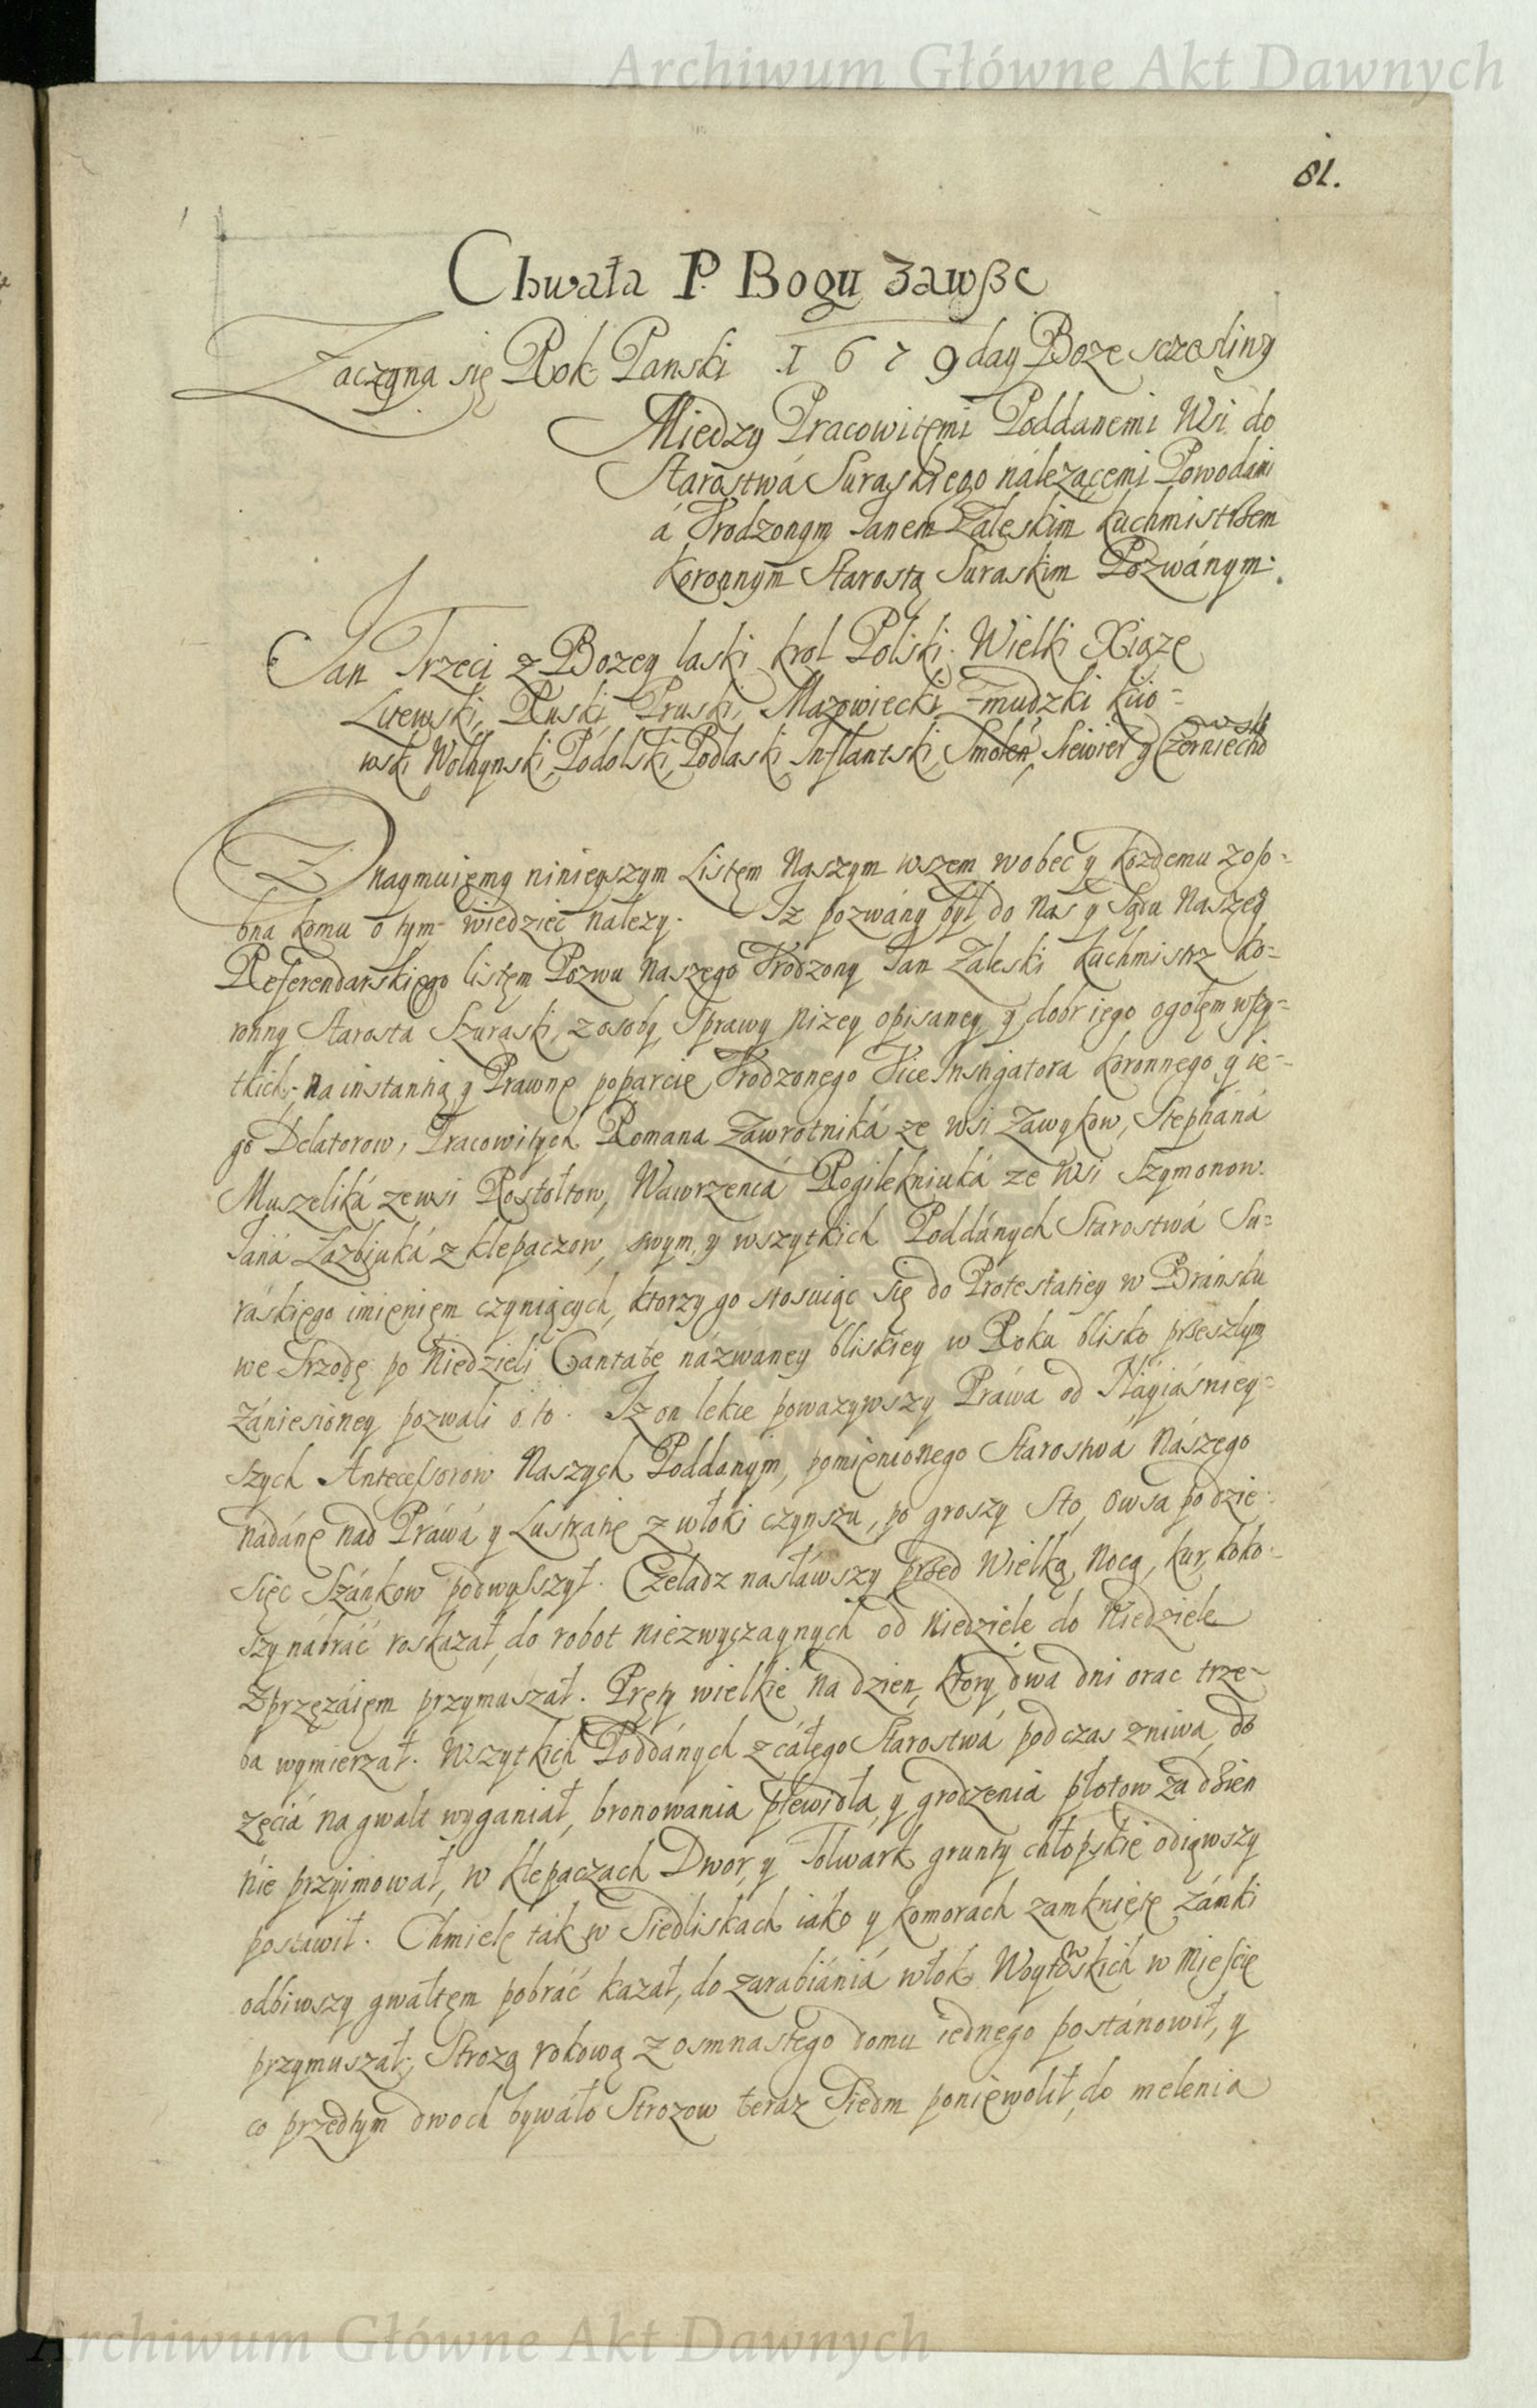 Archiwum Główne Akt Dawnych
81.
Chwała P. Bogu zawβe
Zaczyna się Rok Panski 1679 day Boze sczesliwy
Miedzy Pracowitemi Poddanemi Wsi do
Starostwá Suraskiego náleząćemi Powodami
á Vrodzonym Janem Zaleskim Kuchmistβem
Koronnym Starostą Suraskim Pozwánym.
Jan Trzeci z Bozey laski Krol Polski. Wielki Xiąze
Litewski, Ruski, Pruski, Mazowiecki, Zmudzki Kiio=
wski Wołhynski, Podolski, Podlaski, Inflantski, Smolen, Siewier y Czerniecho
wski
Znaymuięmy ninieyszym Listęm Naszym wszem wobec y kozdemu zoso=
bna komu o tym wiedzieć nalezy. Iz pozwány był do Nas y Sądu Naszeg
Referendarskiego listęm Pozwu Naszego Vrodzony Jan Zaleski Kuchmistrz Ko=
ronny Starosta Szuraski, z osoby, Sprawy nizey opisaney y dobr iego ogołem wβy=
tkich, na instantią y Prawne poparcie Vrodzonego Vice Instigatora Koronnego y ie=
go Delatorow, Pracowitych Romana Zawrotniká ze wsi Zawykow, Stepháná
Muszeliká ze wsi Rostołtow, Wawrzencá Rogilekniuká ze Wsi Szymonow.
Janá Zazbiuká z Klepaczow, swym y wszytkich Poddánych Starostwá Su=
ráskiego imięnięm czyniących, ktorzy go stosuiąc się do Protestatiey w Bránsku
we Srzodę po Niedzieli Cantate názwaney bliskiey w Roku blisko przeszłym
zániesioney pozwali o to. Iz on lekce powazywszy Práwa od Náyiásniey=
szych Antecessorow Naszych Poddanym, pomięnionego Starostwá Nászego
nadáne nad Práwá y Lustratię z włoki czynszu, po groszy Sto, Owsa po dzie=
sięc Szánkow podwysszył. Czeladz nasławszy przed Wielką Nocą, kur, koko=
szy nábráć roskazał, do robot niezwyczaynych od Niedziele do Niedziele
zprzęzáięm przymuszał. Pręty wielkie na dzien, ktory dwa dni orac trze=
ba wymierzał. Wszytkich Poddánych z cáłego Starostwá podczas zniwa, do
zęciá na gwałt wyganiał, bronowania plewidła, y grodzenia płotow za dzien
nie przyimował, w Klepaczach Dwor, y Folwark grunty chłopskie odiąwszy
postawił. Chmiele ták w Siedliskach iáko y komorach zamknięte zámki
odbiwszy gwałtęm pobráć kazał, do zarabiániá włok Woytowskich w Mieście
przymuszał, Strozą rokową z osmnastego domu iednego postánowił, y
co przedtym dwoch bywáło Strozow teraz Siedm poniewolił, do melenia
Archiwum Główne Akt Dawnych